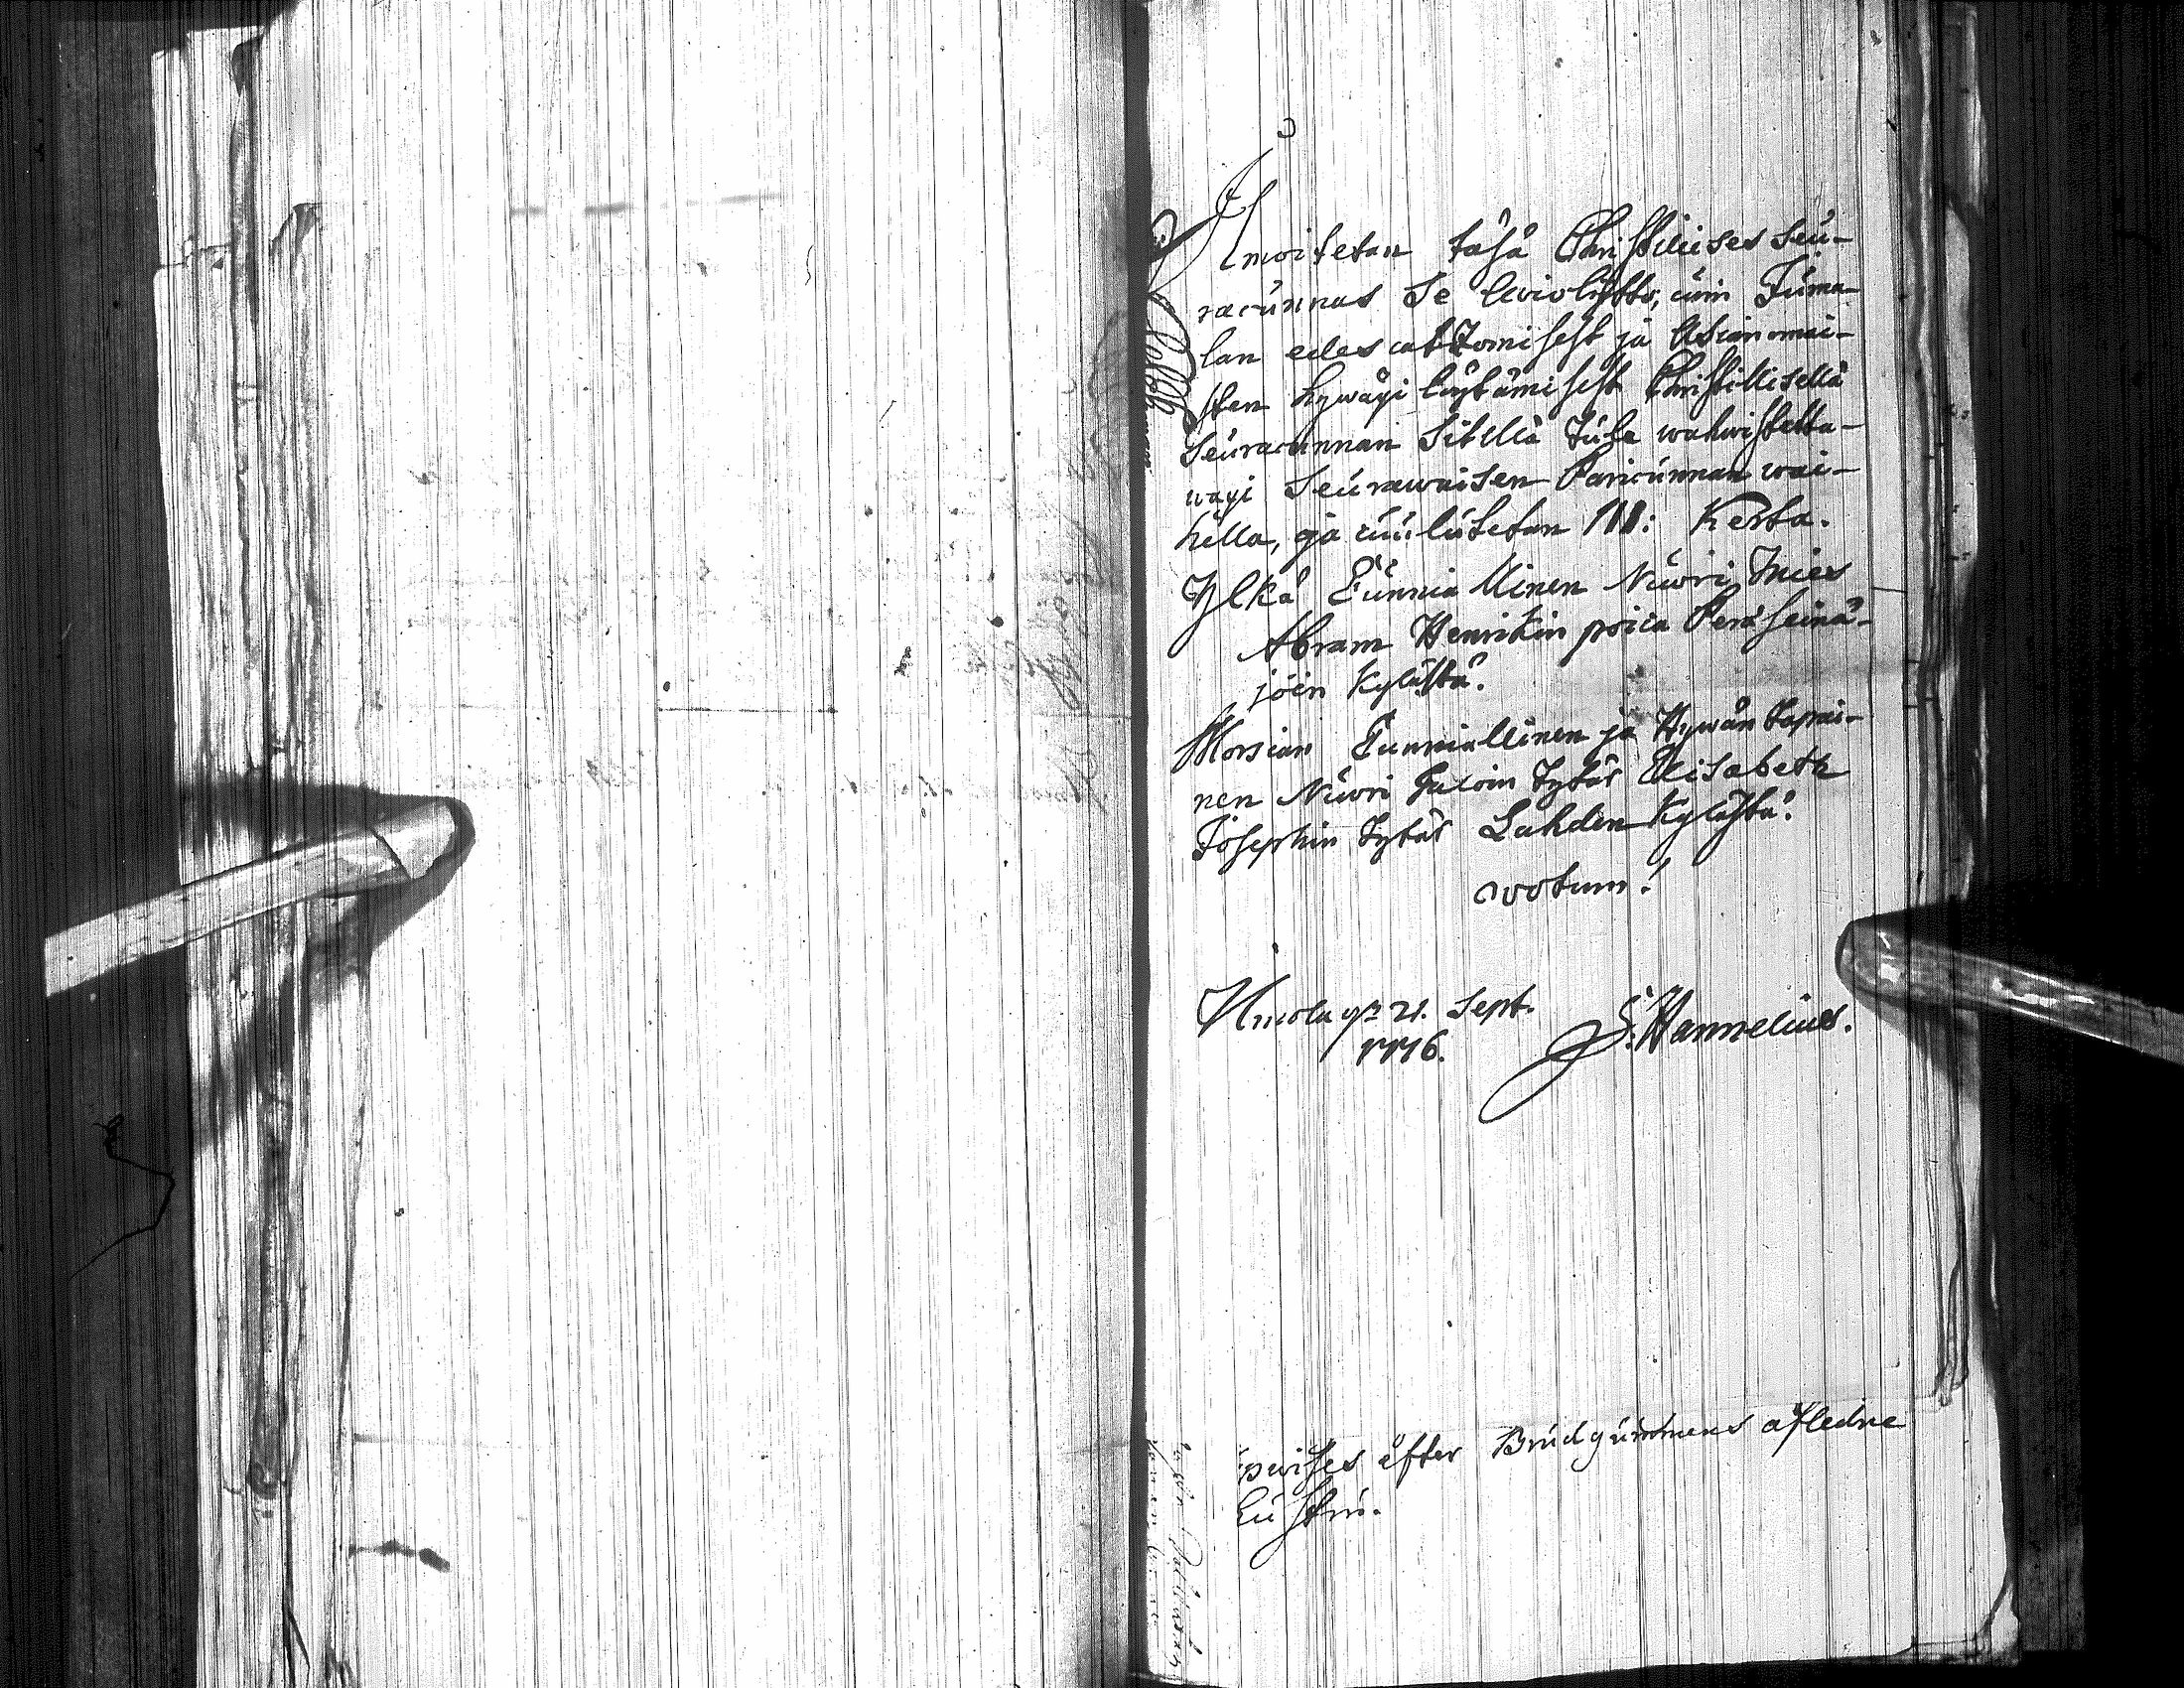 Ilmoitetan täsä Christilises Seu-
racunnas Se Avioliitto, cuin Juma-
lan edescatzomisest ja Asianomai-
sten hywäxi löytämisest Christillisellä
Seuracunnan Sitellä tule wahwistetta-
waxi Seurawaisen Paricunnan wai-
hella, ja cuulutetan III: Kerta.
Ylkä Cunnia llinen Nuori Mies
Abram Henrikin poica Peräseinä-
join Kylästä.
Morsian Cunniallinen ja Hywän tapai-
nen Nuori Taloin tytär Elisabeth
Josephin tytär Lahden Kylästä.
votum!
Ilmola 21. Sept.
1776. S: Hannelius.
pwises efter Brudgummens afledne
hustru.